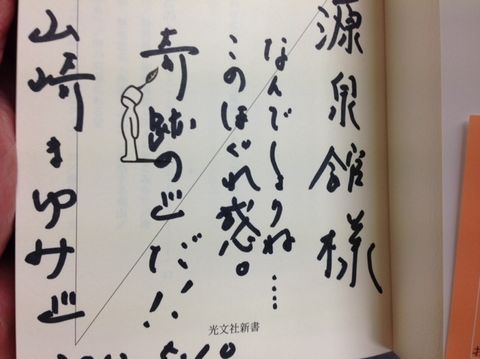 源泉館様
なんでしょうね……
このほぐれ感。
奇跡の♨だ!!
山崎まゆみ♨
光文社新書